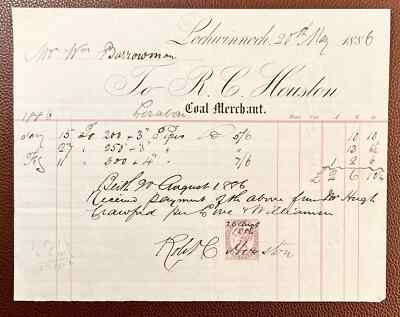 Lochwinnoch, 20th May 1886
Mr Wm Barrowman
To R. C. Houston
Coal Merchant.
1886
15 To 200 - 3" Pipes @ 5/6 10 10
27 " 250 - 3" " 13 6½
" 300 - 4" " 7/6 1 2 6
£ 2 6 10½
Beith 20 August 1886
Received payment of the above from Mr Hugh
Crawford per Love & Williamson
20 Augt
1886
Robt C Houston